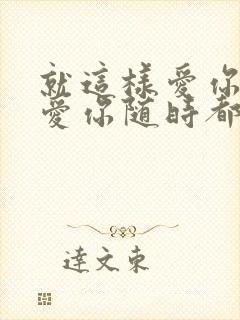 就這樣愛你
愛你随時都
達文東